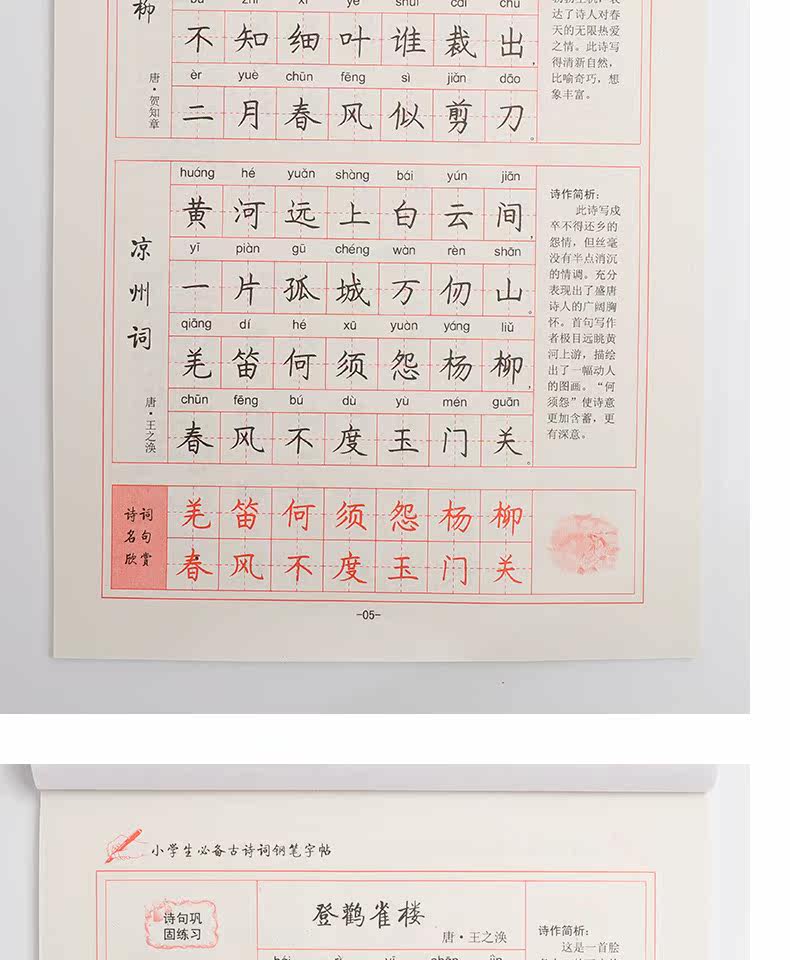 柳
唐·贺知章
bù zhī xì yè shuí cái chū
不知细叶谁裁出,
èr yuè chūn fēng sì jiǎn dāo
二月春风似剪刀。
达了诗人对春
天的无限热爱
之情。此诗写
得清新自然,
比喻奇巧,想
象丰富。
凉州词
唐·王之涣
huáng hé yuǎn shàng bái yún jiān
黄河远上白云间,
yī piàn gū chéng wàn rèn shān
一片孤城万仞山。
qiāng dí hé xū yuàn yáng liǔ
羌笛何须怨杨柳,
chūn fēng bú dù yù mén guān
春风不度玉门关。
诗作简析:
此诗写戍
卒不得还乡的
怨情,但丝毫
没有半点消沉
的情调。充分
表现出了盛唐
诗人的广阔胸
怀。首句写作
者极目远眺黄
河上游,描绘
出了一幅动人
的图画。“何
须怨”使诗意
更加含蓄,更
有深意。
诗词
名句
欣赏
羌笛何须怨杨柳
春风不度玉门关
-05-
小学生必备古诗词钢笔字帖
诗句巩
固练习
登鹳雀楼
唐·王之涣
诗作简析:
这是一首脍